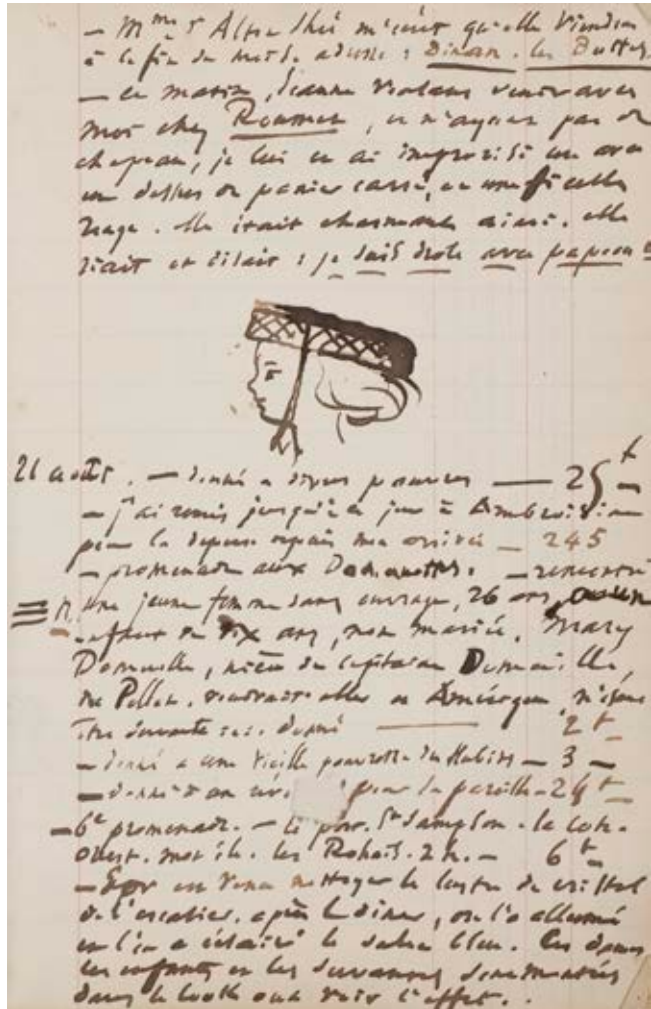 — Mme d'Alton Shée m'écrit qu'elle viendra
à la fin du mois. adresse : Dinan. les Buttes.
— ce matin, Jeanne voulant venir avec
moi chez Roumen, et n'ayant pas de
chapeau, je lui en ai improvisé un avec
un dessus de panier cassé, et une ficelle
rouge. elle était charmante ainsi. elle
riait et disait : je suis drole avec papeau
21 août. — donné à divers pauvres — 25 f
— j'ai remis jusqu'à ce jour à
pour la dépense depuis mon arrivée — 245
— promenade aux — rencontré
une jeune femme sans ouvrage, 26 ans,
enfant de dix ans, non mariée, Mary
Domaille, nièce du capitaine Domaille,
du Pollet. voudrait aller en Amérique
être servante donné — 2 f
— donné à une vieille pauvresse — 3 —
— donné pour la pareille — 24 f
— 6e promenade. — le port St Sampson. la côte
ouest. les Rohais. 2 h. — 6 f
— est venu nettoyer le lustre de cristal
de l'escalier. après le dîner, on l'a allumé
et l'on a éclairé le salon bleu. les dames
les enfants et les servantes sont montées
dans le look out voir l'effet.